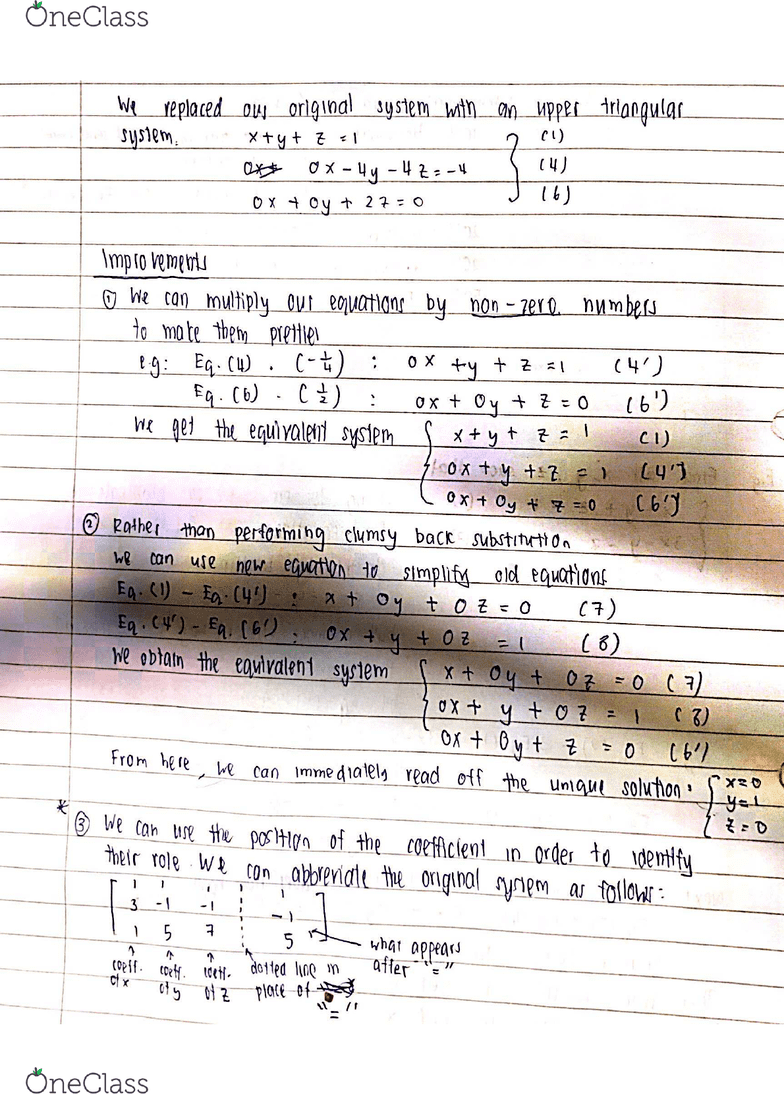 OneClass
We replaced our original system with an upper triangular
system. x+y+ z =1 (1)
0x+ 0x-4y-4z=-4 (4)
0x + 0y + 2z=0 (6)
Improvements
① We can multiply our equations by non-zero numbers
to make them prettier
eg: Eq.(4) . (-1/4) : 0x +y + z =1 (4')
Eq.(6) . (1/2) : 0x + 0y + z = 0 (6')
We get the equivalent system x+y+ z = 1 (1)
0x + y + z = 1 (4')
0x + 0y + z =0 (6')
② Rather than performing clumsy back substitution
we can use new equation to simplify old equations
Eq.(1) - Eq.(4') : x + 0y + 0z = 0 (7)
Eq.(4') - Eq.(6') : 0x + y + 0z = 1 (8)
We obtain the equivalent system x + 0y + 0z = 0 (7)
0x + y + 0z = 1 (8)
0x + 0y + z = 0 (6')
From here, we can immediately read off the unique solution: x=0
y=1
z=0
* ③ We can use the position of the coefficient in order to identify
their role. We can abbreviate the original system as follows:
1 1 1 1
3 -1 -1 -1
1 5 7 5 what appears
after "="
coeff. coeff. coeff. dotted line in
of x of y of z place of
"="
OneClass